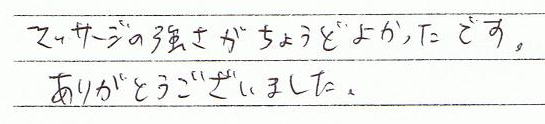 マッサージの強さがちょうどよかったです。
ありがとうございました。